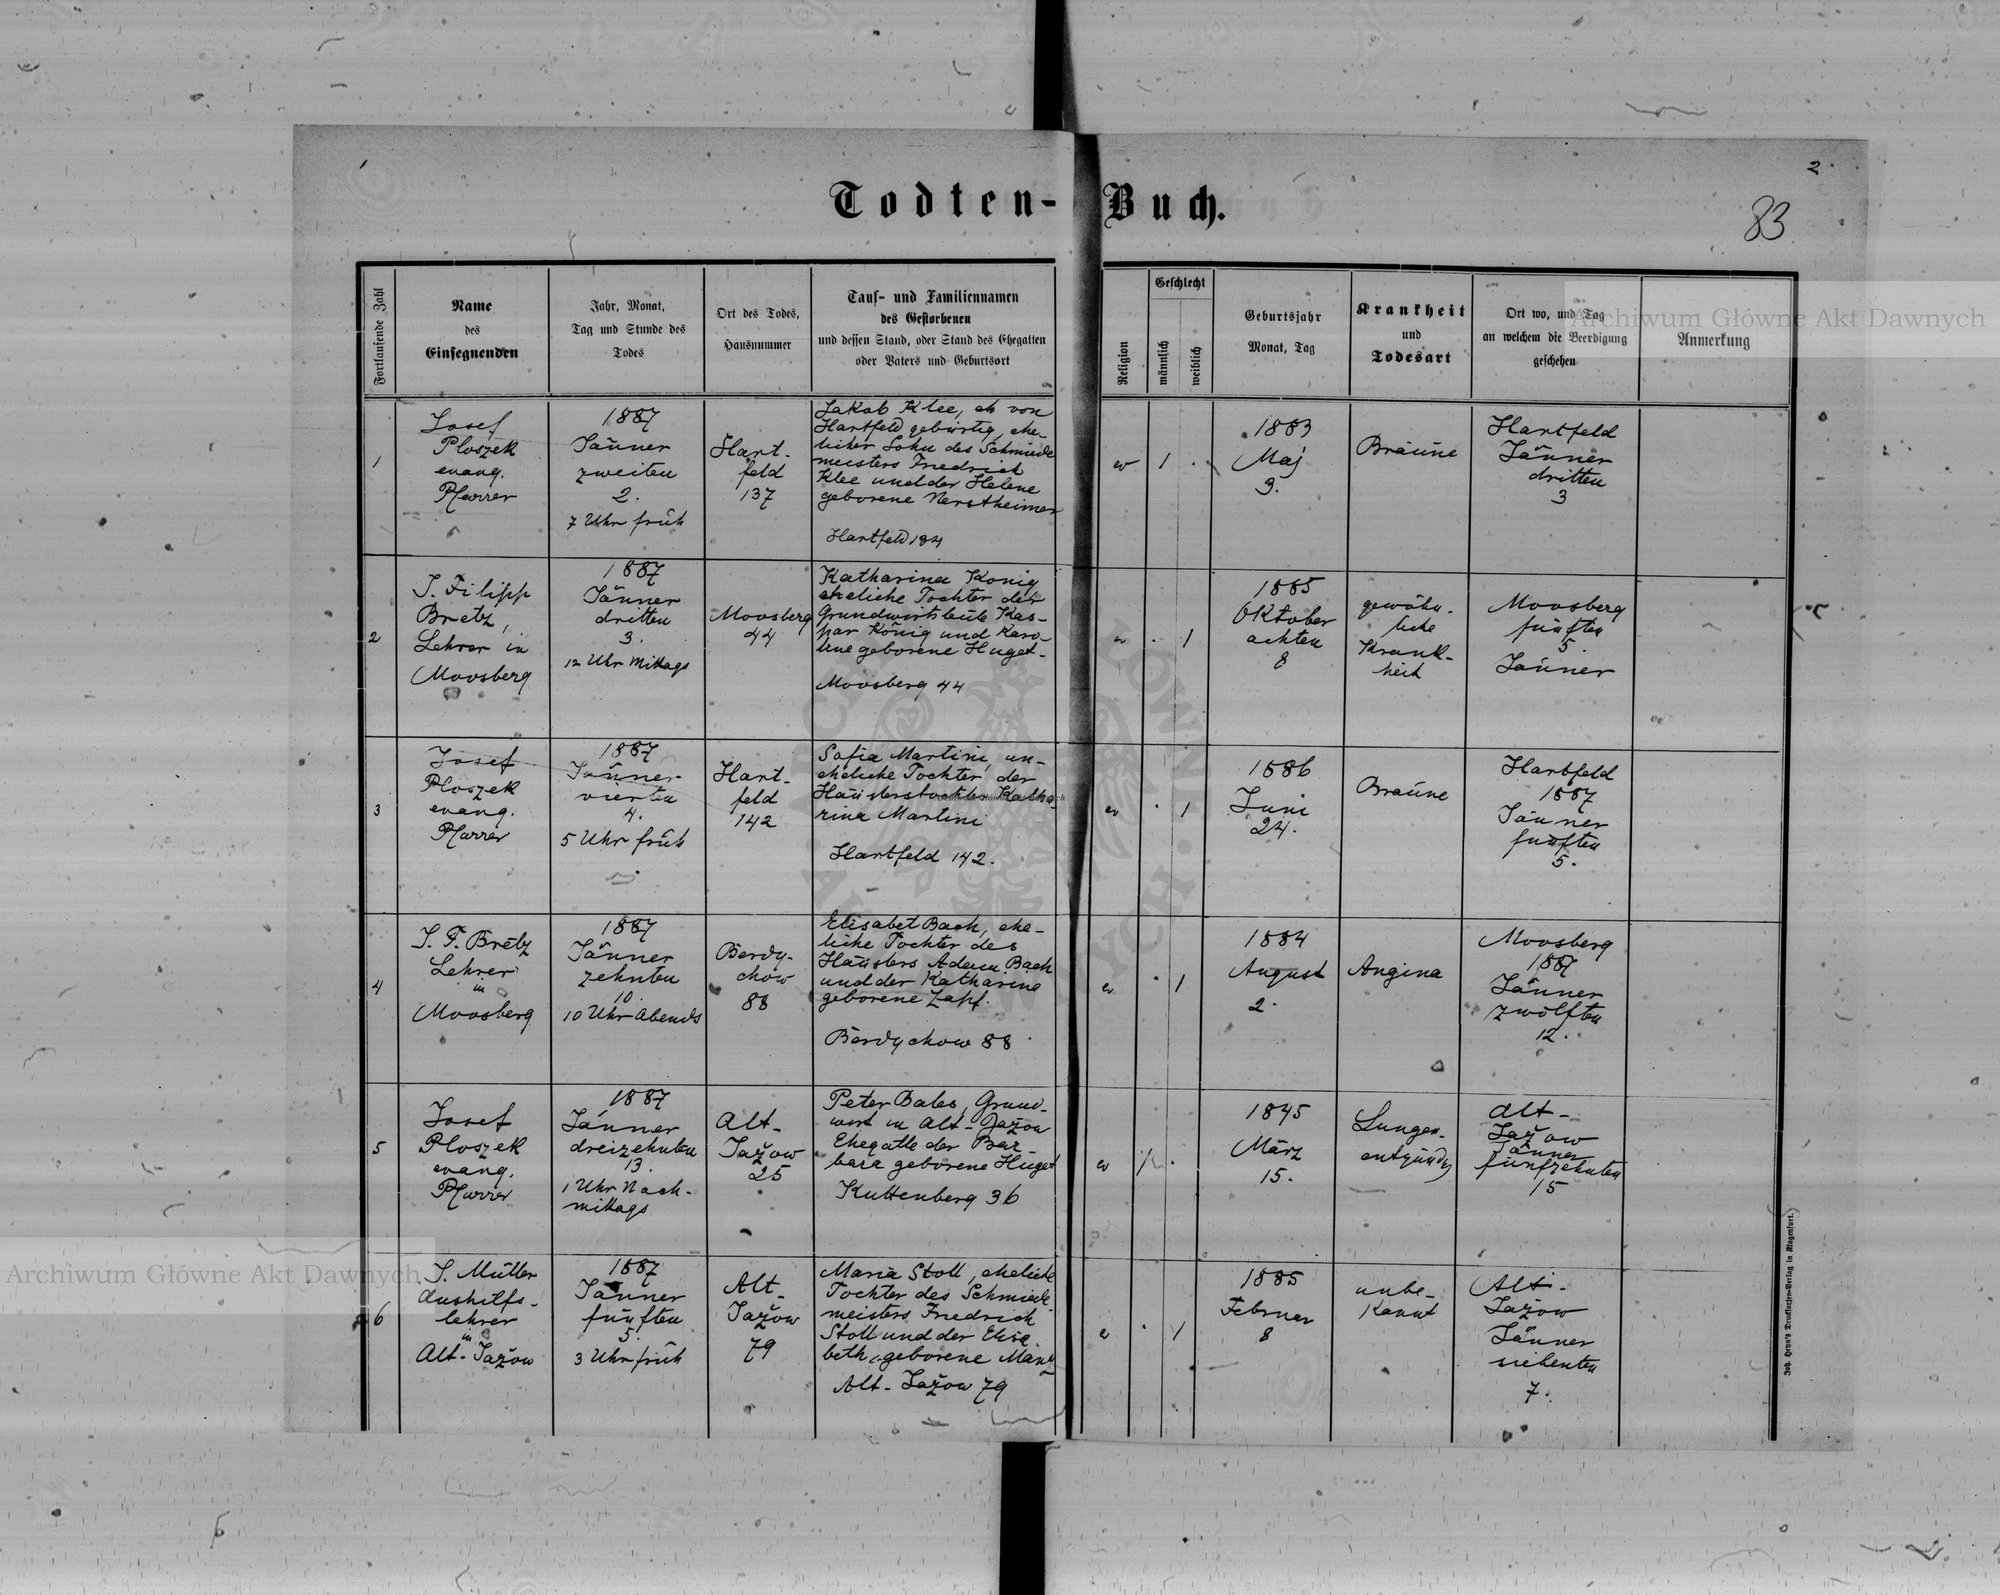 1
2
Todten-Buch.
83
Fortlaufende Zahl
Name
des
Einsegnenden
Jahr, Monat,
Tag und Stunde des
Todes
Ort des Todes,
Hausnummer
Tauf- und Familiennamen
des Gestorbenen
und dessen Stand, oder Stand des Ehegatten
oder Vaters und Geburtsort
Religion
Geschlecht
männlich
weiblich
Geburtsjahr
Monat, Tag
Krankheit
und
Todesart
Ort wo, und Tag
an welchem die Beerdigung
geschehen
Anmerkung
1
Josef
Ploszek
evang.
Pfarrer
1887
Jänner
zweiten
2.
7 Uhr früh
Hart-
feld
137
Jakob Klee, ev von
Hartfeld gebürtig, ehe-
licher Sohn des Schmiede
meisters Friedrich
Klee und der Helene
geborene
Hartfeld 184
ev
1
.
1883
Maj
3.
Bräune
Hartfeld
Jänner
dritten
3
2
J. Filipp
Bretz,
Lehrer in
Moosberg
1887
Jänner
dritten
3.
12 Uhr Mittags
Moosberg
44
Katharina König
eheliche Tochter der
Grundwirtsleute Kas-
par König und Karo-
line geborene Huget.
Moosberg 44
ev
.
1
1885
Oktober
achten
8
gewöhn-
liche
Krank-
heit
Moosberg
fünften
5.
Jänner
3
Josef
Ploszek
evang.
Pfarrer
1887
Jänner
vierten
4.
5 Uhr früh
Hart-
feld
142
Sofia Martini, un-
eheliche Tochter der
Häuslerstochter Katha-
rina Martini
Hartfeld 142.
ev
.
1
1886
Juni
24.
Bräune
Hartfeld
1887
Jänner
fünften
5.
4
J. F. Bretz
Lehrer
in
Moosberg
1887
Jänner
zehnten
10.
10 Uhr Abends
Berdy-
chow
88
Elisabet Bach, ehe-
liche Tochter des
Häuslers Adam Bach
und der Katharina
geborene Zapf.
Berdychow 88
ev
.
1
1884
August
2.
Angina
Moosberg
1887
Jänner
zwölften
12.
5
Josef
Ploszek
evang.
Pfarrer
1887
Jänner
dreizehnten
13.
1 Uhr Nach-
mittags
Alt-
Jažow
25
Peter Bales, Grund-
wirt in Alt-Jažow
Ehegatte der Bar-
bara geborene Huget
Kuttenberg 36
ev
1
.
1845
März
15.
Lungen-
entzündg
Alt-
Jažow
Jänner
fünfzehnten
15
6
J. Müller
Aushilfs-
lehrer
in
Alt-Jažow
1887
Jänner
fünften
5.
3 Uhr früh
Alt-
Jažow
79
Maria Stoll, eheliche
Tochter des Schmiede-
meisters Friedrich
Stoll und der Elisa-
beth, geborene Manz
Alt-Jažow 79
ev
.
1
1885
Februar
8
unbe-
kannt
Alt-
Jažow
Jänner
siebenten
7.
Joh. Heyn's Drucksorten-Verlag in Klagenfurt.
Archiwum Główne Akt Dawnych
Archiwum Główne Akt Dawnych